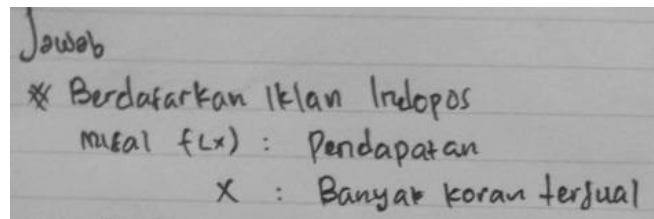 Jawab
* Berdasarkan Iklan Indopos
misal f(x) : Pendapatan
x : Banyak koran terjual